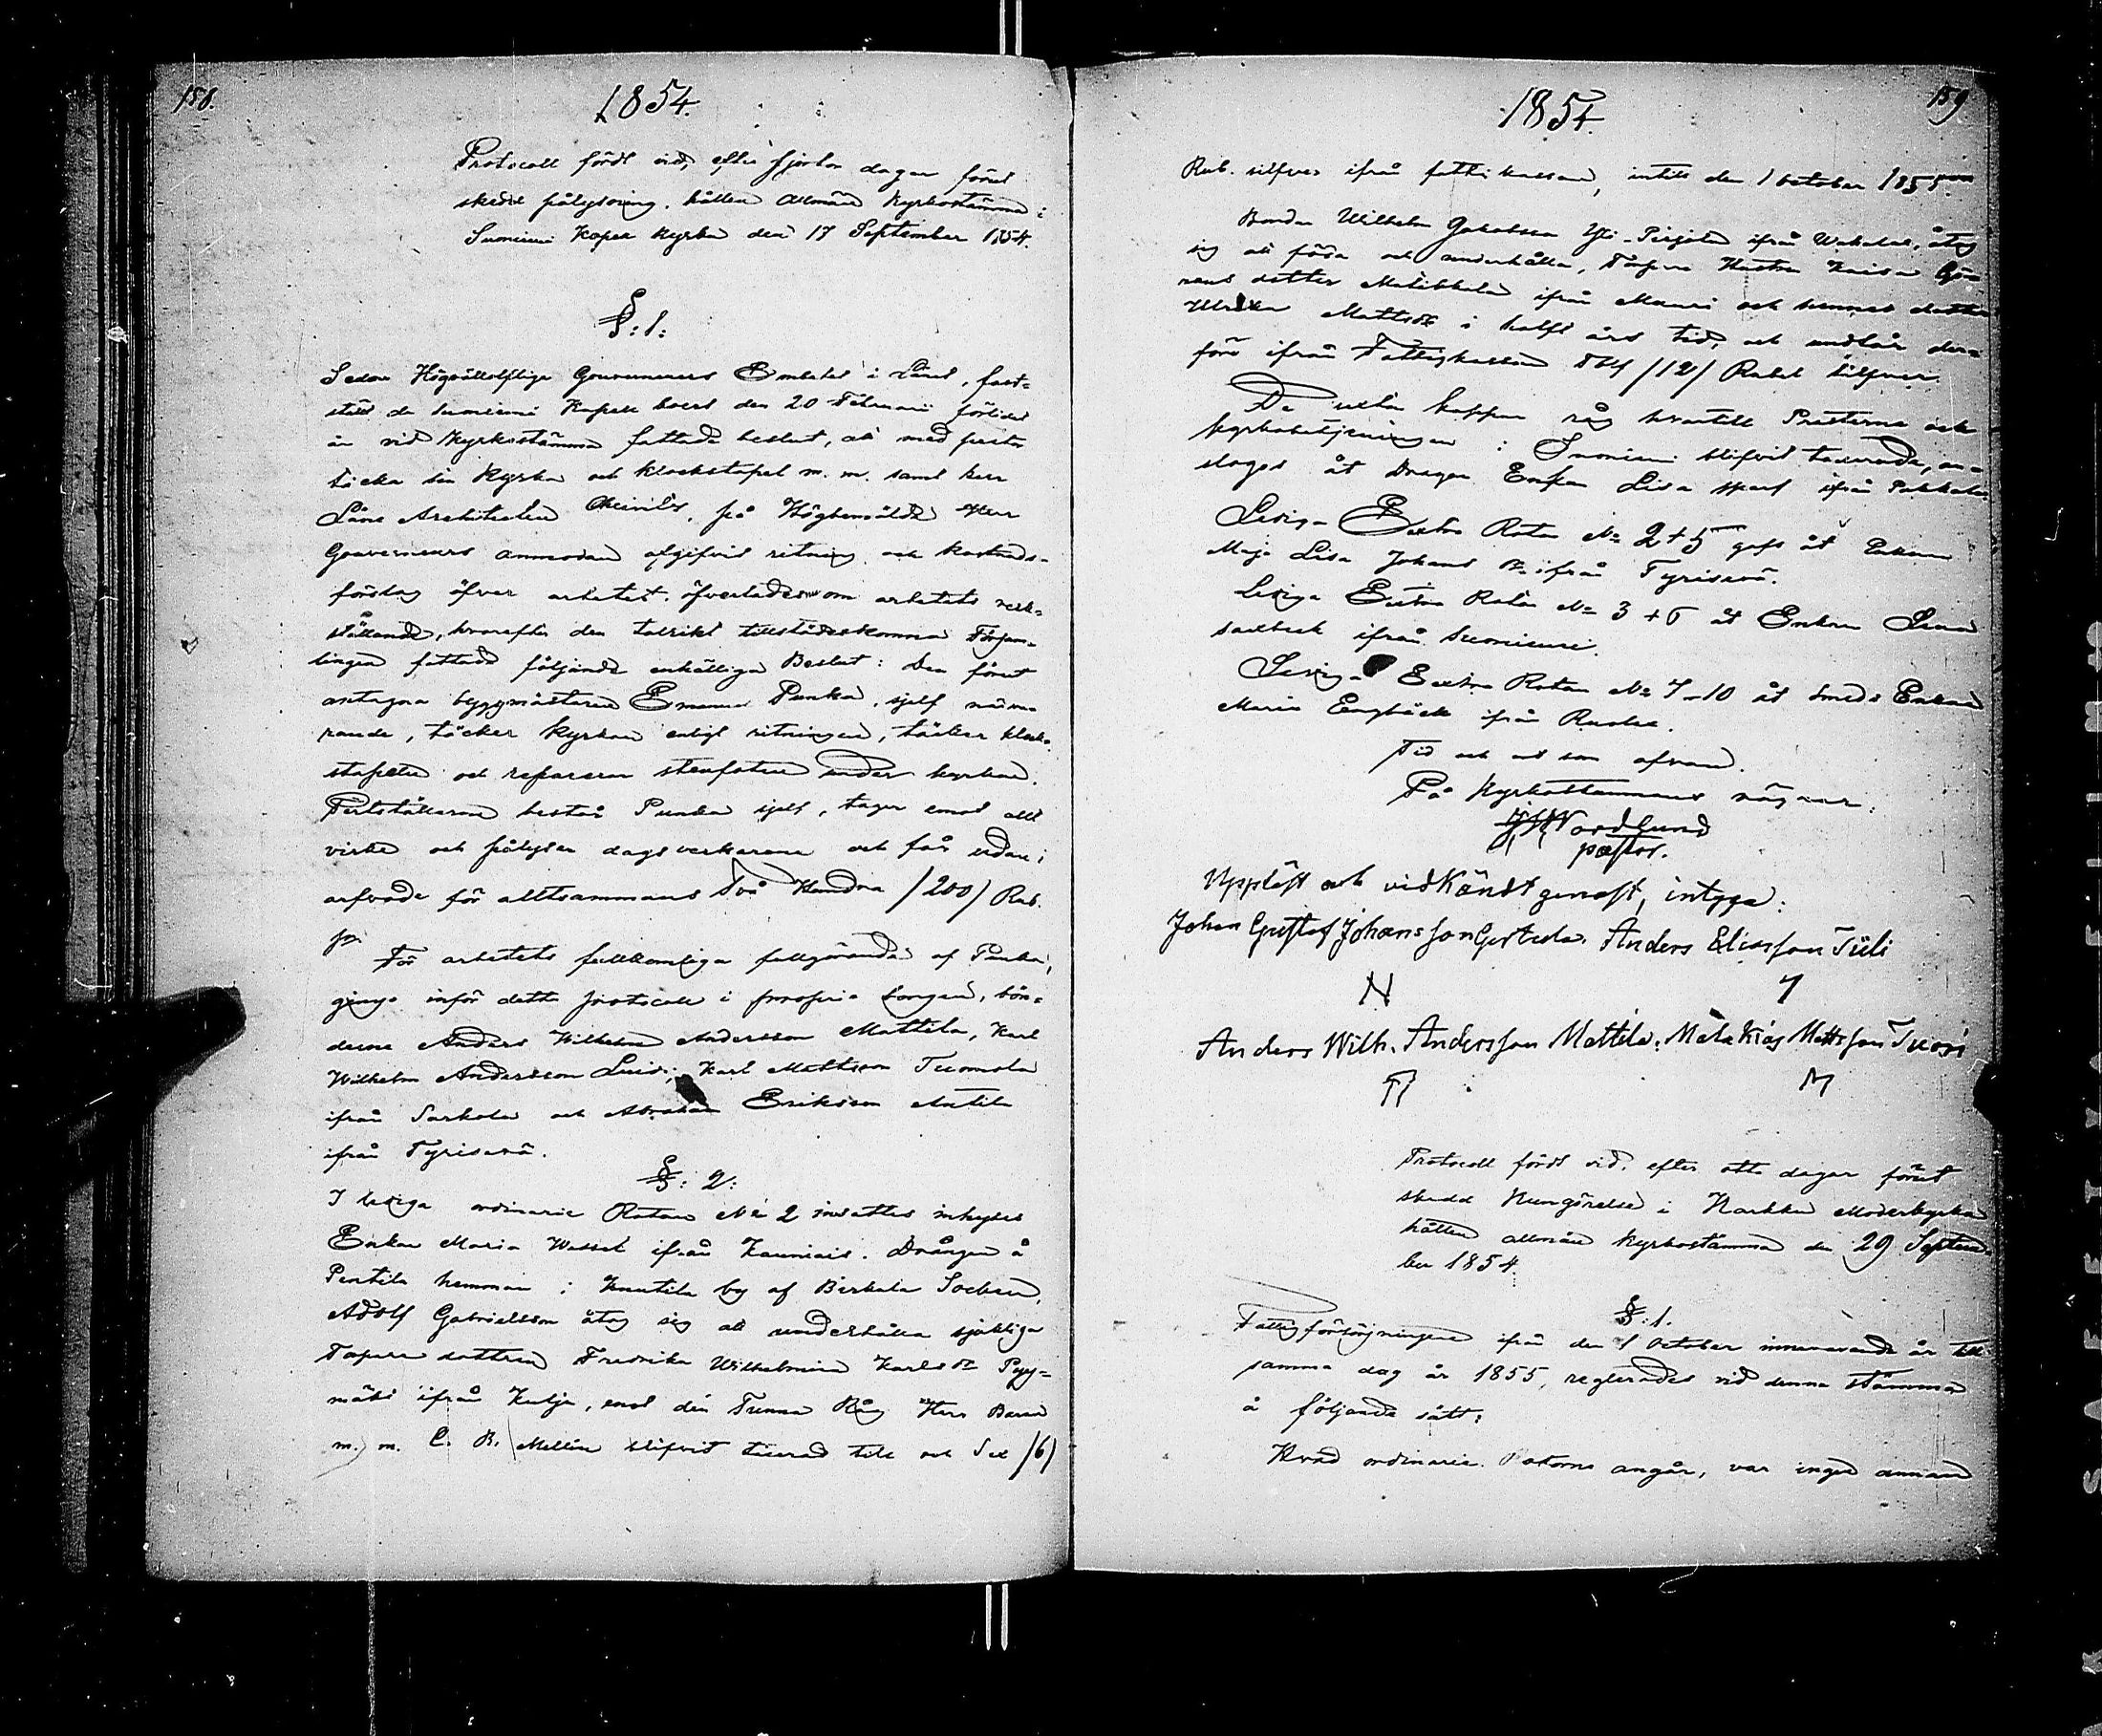 158.
1854.
Protocoll fördt vid, efter fjorton dagar förut
skedd pålysning, hållen allmän Kyrkostämma i
Suoniemi Kapell kyrka den 17 September 1854.
§: 1:
Sedan Högvällofliga Gouverneurs Embetet i Länet, fast-
stält de Suoniemi Kapell boers den 20 Februarii förlidet
år vid Kyrkostämma fattade beslut, att med
täcka sin Kyrka och klockstapel m. m. samt herr
Läns Architecten på Högbemälde Herr
Gouverneurs anmodan afgifvit ritning och kostnads-
förslag öfver arbetet, öfverlades om arbetets verk-
ställande, hvarefter den talrikt tillstädeskomna Församl-
lingen fattade följande enhälliga Beslut: Den förut
antagna byggmästaren Emanuel Punka, sjelf närva-
rande, täcker Kyrkan enligt ritningen, täcker klock-
stapeln och reparerar stenfoten under kyrkan.
består Punka sjelf, tager emot allt
virke och pålyser dagsverkarena och får sedan i
arfvode för alltsammans Två Hundra /200/ Rub.
sr.
För arbetets fullkomliga fullgörande af Punka,
gingo inför detta protocoll i proprie borgen, bön-
derne Anders Wilhelm Andersson Mattila, Karl
Wilhelm Andersson Luis, Karl Mattsson Tuomola
ifrån Sarkola och Abraham Eriksson Antila
ifrån Tyrisevä.
§: 2:
I lediga ordinarie Rotan No 2 insattes inhyses
Enkan Maria Wessel ifrån Kauniais. Drängen å
Pentila hemman i Knutila by af Birkala Socken,
Adolf Gabrielsson åtog sig att underhålla sjukliga
Torpare dottren Fredrika Wilhelmina Karlsdr Pyy-
mäki ifrån Kulju, emot den Tunna Råg Herr Baron
m. m. C. B. Mellin blifvit taxerad till och Sex /6/
159
1854.
Rub. silfver ifrån fattikassan, intill den 1 october 1855.
Bonden Wilhelm Jakobsson Yli-Pirjola ifrån Wahalahti, åtog
sig att föda och underhålla, Torpare Hustru Kaisa Gö-
rans dotter ifrån Mauri och hennes dotter
Ulrika Mattsdr i halft års tid, och undfår der-
före ifrån Fattigkassan Tolf /12/ Rubel silfver.
De sexton kappar råg hvartill Presterna och
kyrkobetjeningen i Suoniemi blifvit taxerade, an-
slogos åt Dragon Enkan Lisa Sparf ifrån Pakkala
Lediga Extra Rotan No 2 + 5 gafs åt Enkan
Maja Lisa Johans dr ifrån Tyrisevä.
Lediga Extra Rotan No 3 + 6 åt Enkan Lena
Saxbeck ifrån Suoniemi.
Lediga Extra Rotan No 7-10 åt Smeds Enkan
Maria Engbäck ifrån
Tid och ort som ofvan.
På Kyrkostämmans vägnar:
Nordlund
pastor.
Uppläst och vidkändt genast, intyga:
Johan Gustaf Johansson Gertula. Anders Eliasson Tüli
N 7
Anders Wilh. Andersson Mattila. Malakias Mattsson Tuori
M
Protocoll fördt vid, efter åtta dagar förut
skedd Kungörelse i Karkku Moderkyrka
hållen allmän Kyrkostämma den 29 Septem-
ber 1854.
§: 1.
Fattigförsörjningen ifrån den 1 October innevarande år till
samma dag år 1855, reglerades vid denna stämma
å följande sätt:
Hvad ordinarie Rotorna angår, var ingen annan